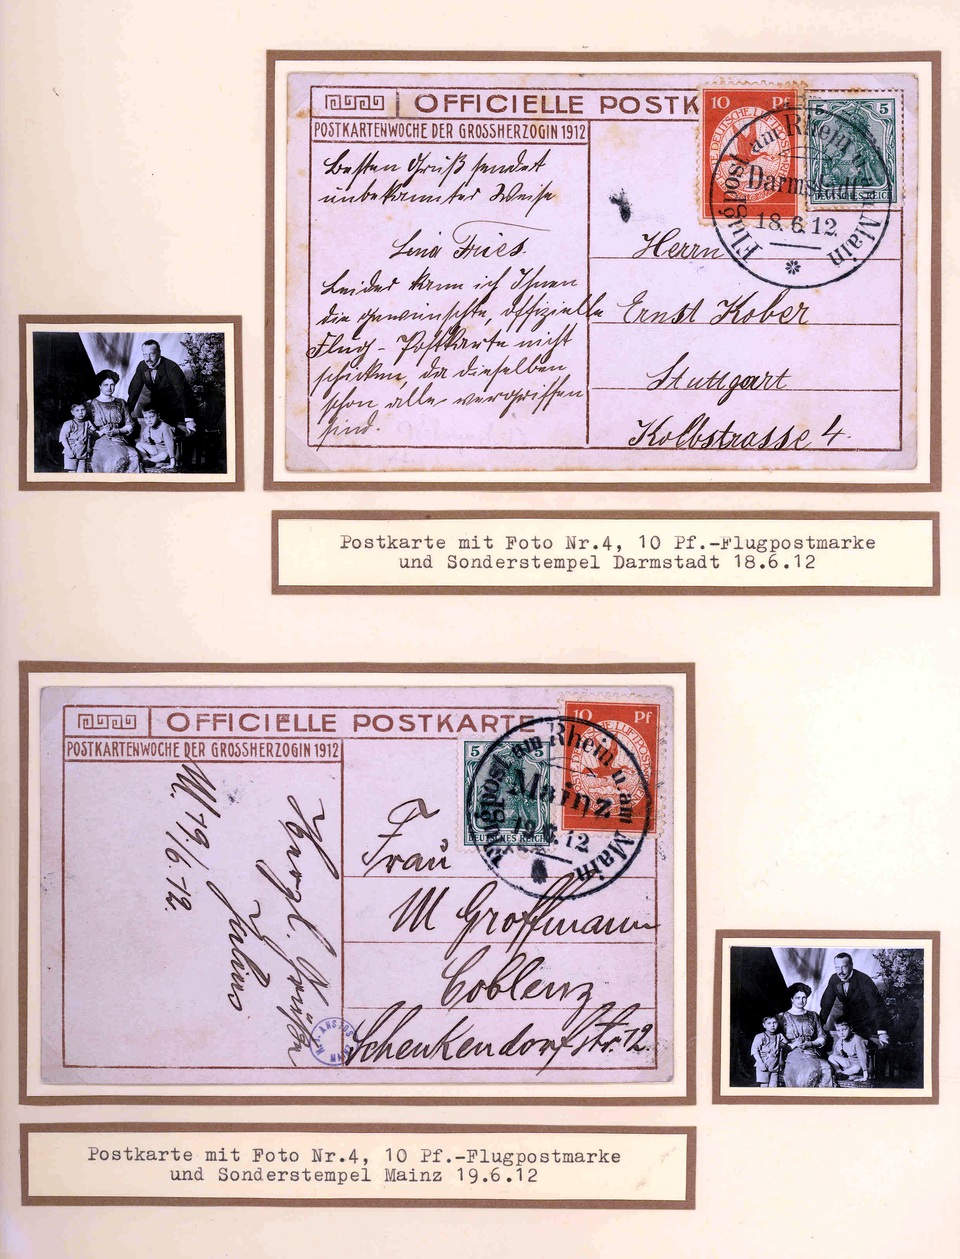 OFFICIELLE POSTK
POSTKARTENWOCHE DER GROSSHERZOGIN 1912
10 Pf
5 5
DEUTSCHES REICH
Flugpost am Rhein u. am Main
Darmstadt
18.6.12
Besten Gruß sendet
unbekannter Weise
Lina Fries.
Leider kann ich Ihnen
die gewünschte, offizielle
Flug-Postkarte nicht
schicken, da dieselben
schon alle vergriffen
sind.
Herrn
Ernst Kober
Stuttgart
Kolbstrasse 4.
Postkarte mit Foto Nr.4, 10 Pf.-Flugpostmarke
und Sonderstempel Darmstadt 18.6.12
OFFICIELLE POSTKARTE
POSTKARTENWOCHE DER GROSSHERZOGIN 1912
5 5
DEUTSCHES REICH
10 Pf
Flugpost am Rhein u. am Main
Mainz
19.6.12
M. 19/6.12.
Herzl. Grüßen
Julius
Frau
M Groffmann
Coblenz
Schenkendorfstr. 12.
Postkarte mit Foto Nr.4, 10 Pf.-Flugpostmarke
und Sonderstempel Mainz 19.6.12